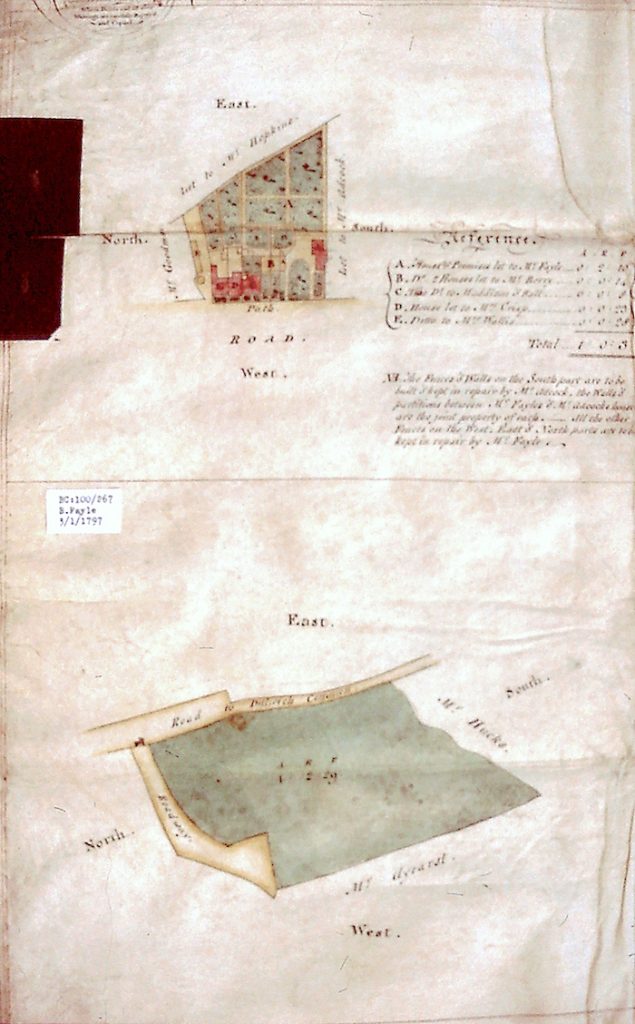 East.
let to Mr. Hopkins.
North.
Mr. Goodman
A
B
let to Mr. Adcock
South.
Path
ROAD.
West.
Reference.
A. R. P.
A. House & Premises let to Mr. Fayle 0. 2. 10
B. Do. 2 Houses let to Mr. Berry 0. 0.
C. Two Do. to & Ball 0. 0.
D. House let to Mrs. Crisp 0. 0. 23
E. Ditto to Mrs. Wallis 0. 0.
Total 1. 0. 3
NB. The Fences & Walls on the South part are to be
built & kept in repair by Mr. Adcock, the Walls &
partitions between Mr. Fayles & Mr. Adcocks house
are the joint property of each. All the other
Fences on the West, East & North parts are to be
kept in repair by Mr. Fayle.
BC:100/867
B.Fayle
3/1/1797
East.
Road to Common
South.
Mr. Hucks.
A R P
1 2 29
Roadway.
North.
Mr.
West.